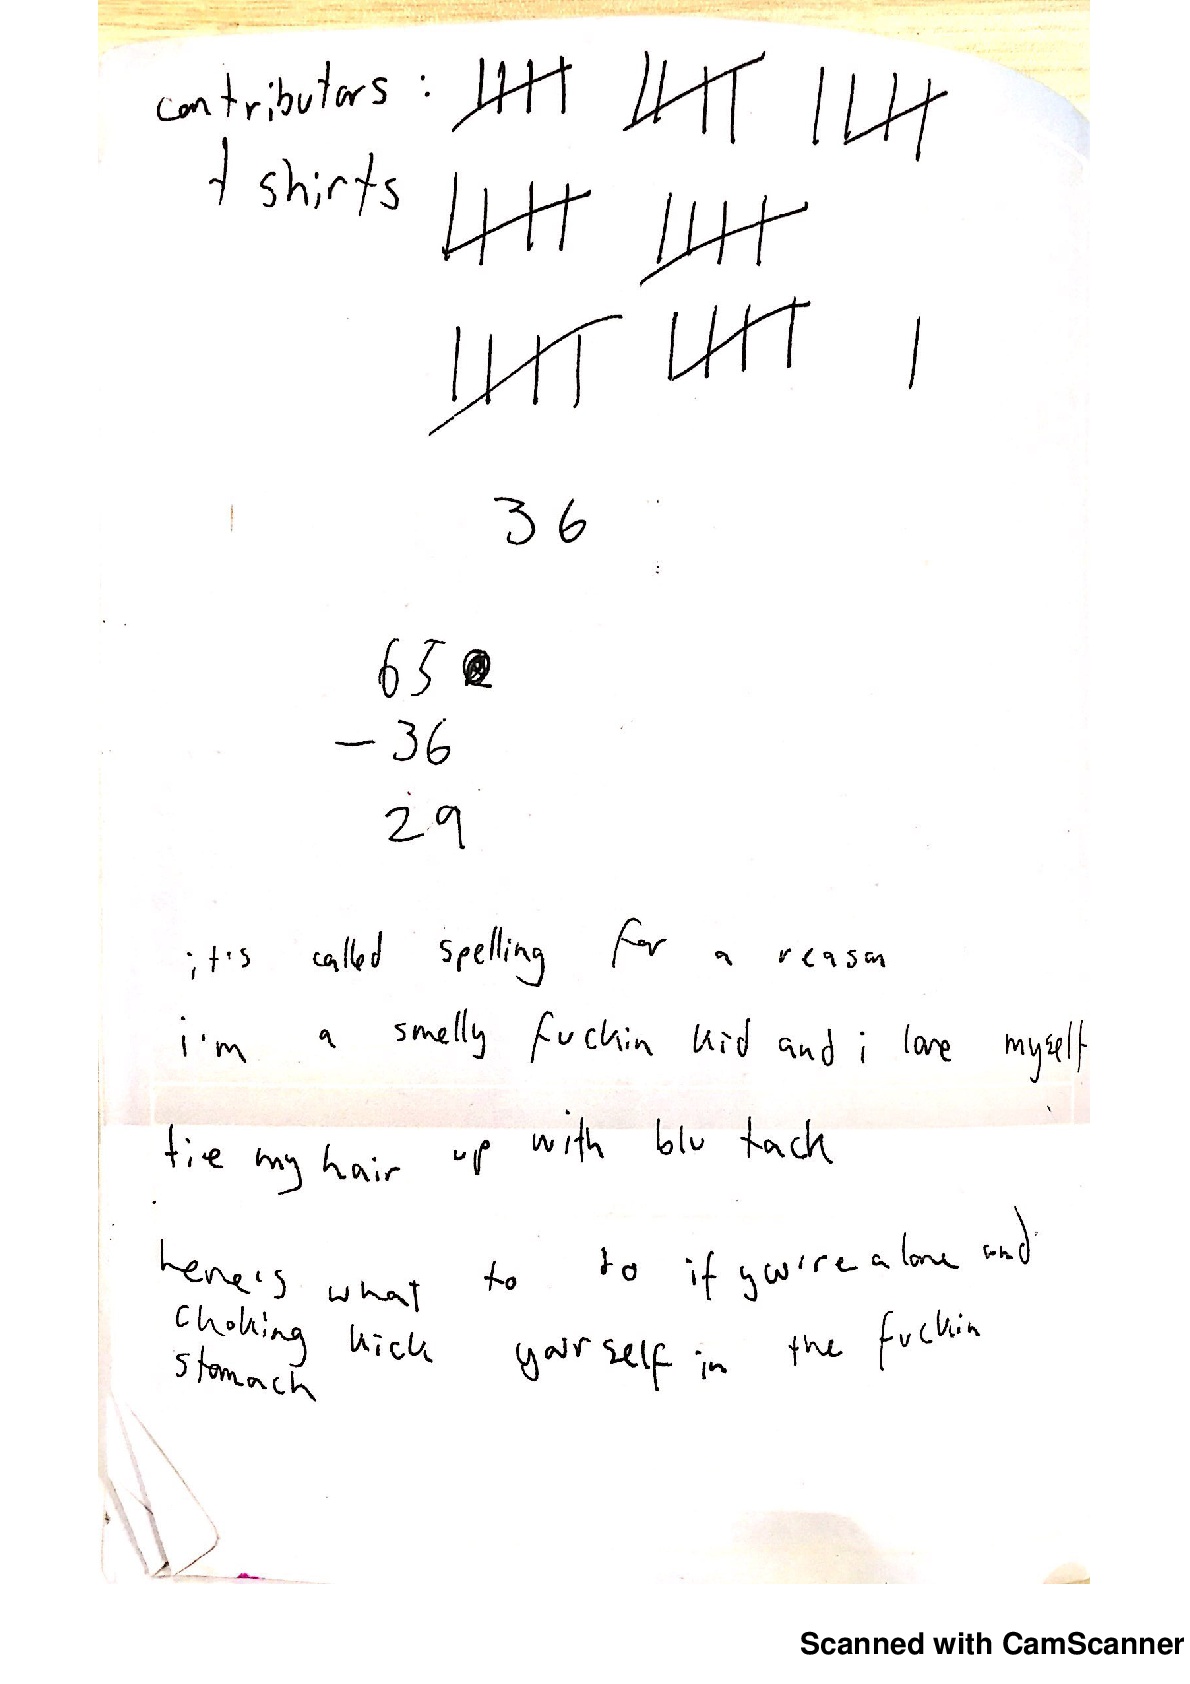 contributors :
t shirts
36
65
- 36
29
it's called spelling for a reason
i'm a smelly fuckin kid and i love myself
tie my hair up with blu tack
here's what to to if you're alone and
choking kick yourself in the fuckin
stomach
Scanned with CamScanner